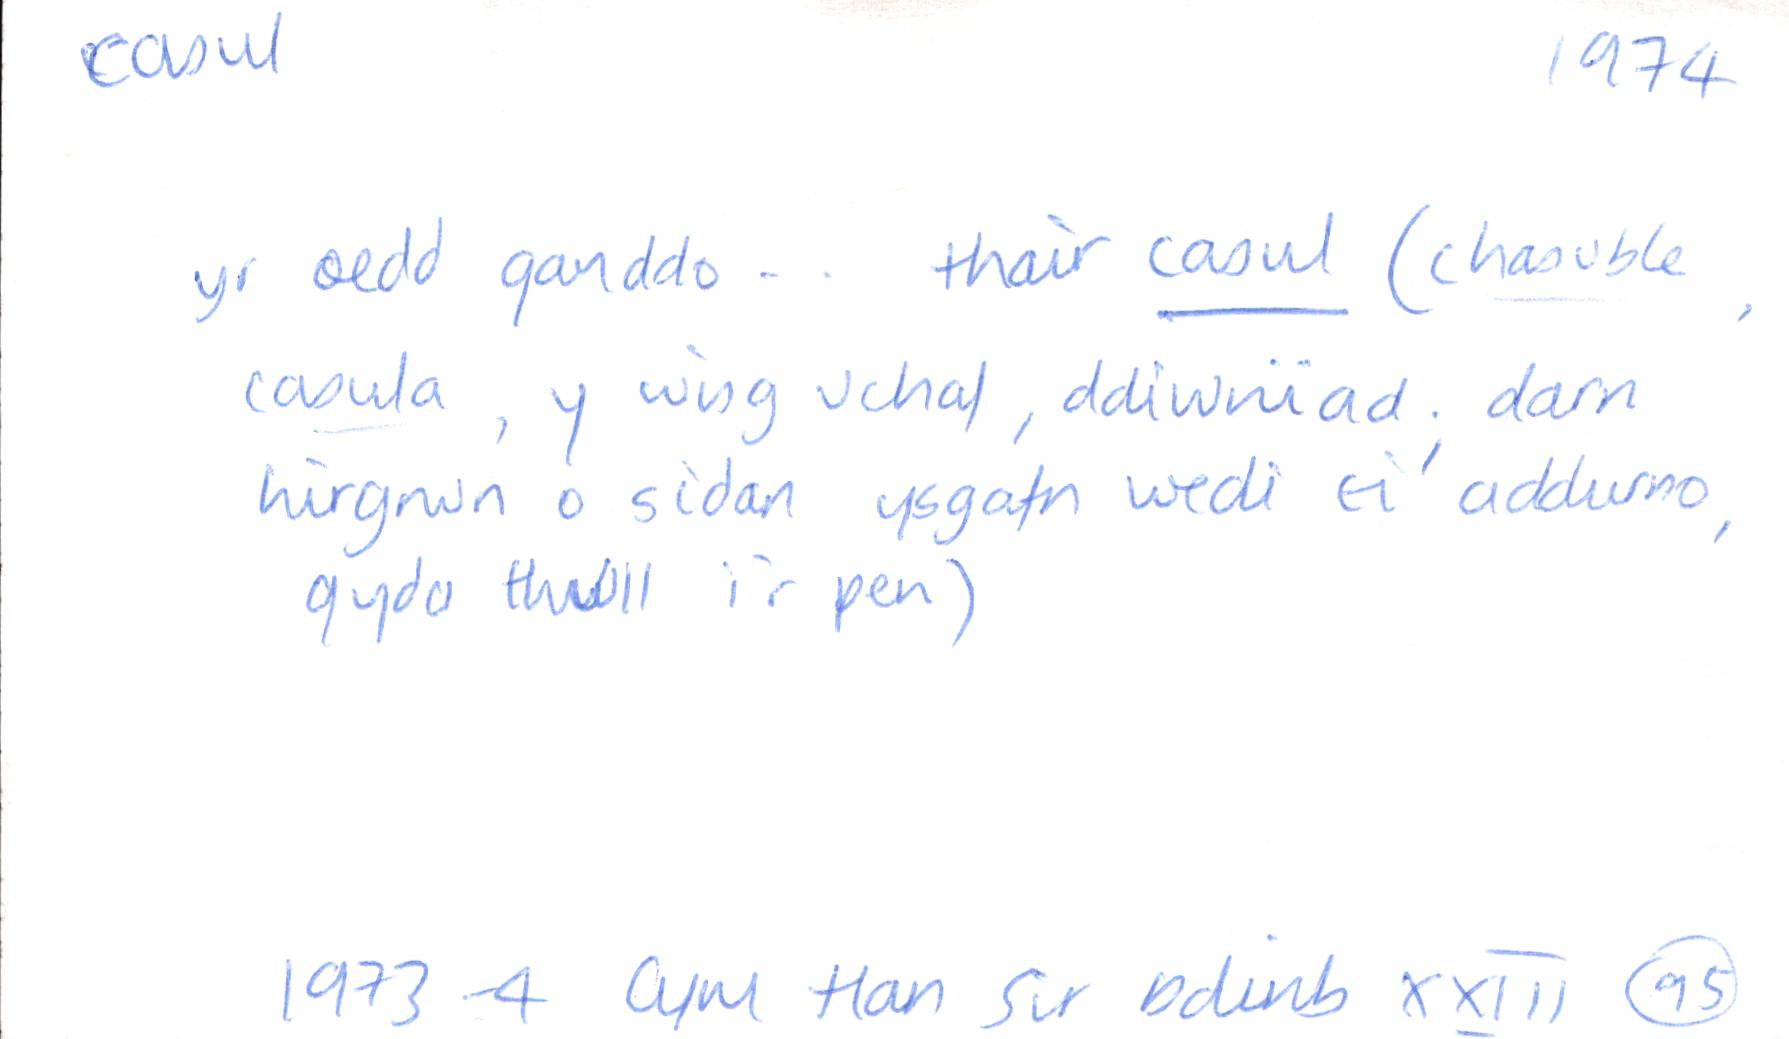 casul 1974
yr oedd ganddo . . . thair casul (chasuble,
casula, y wisg uchaf, ddiwnïad; darn
hirgrwn o sidan ysgafn wedi ei addurno,
gyda thwll i'r pen)
1973-4 Cym Han Sir Ddinb XXIII 95